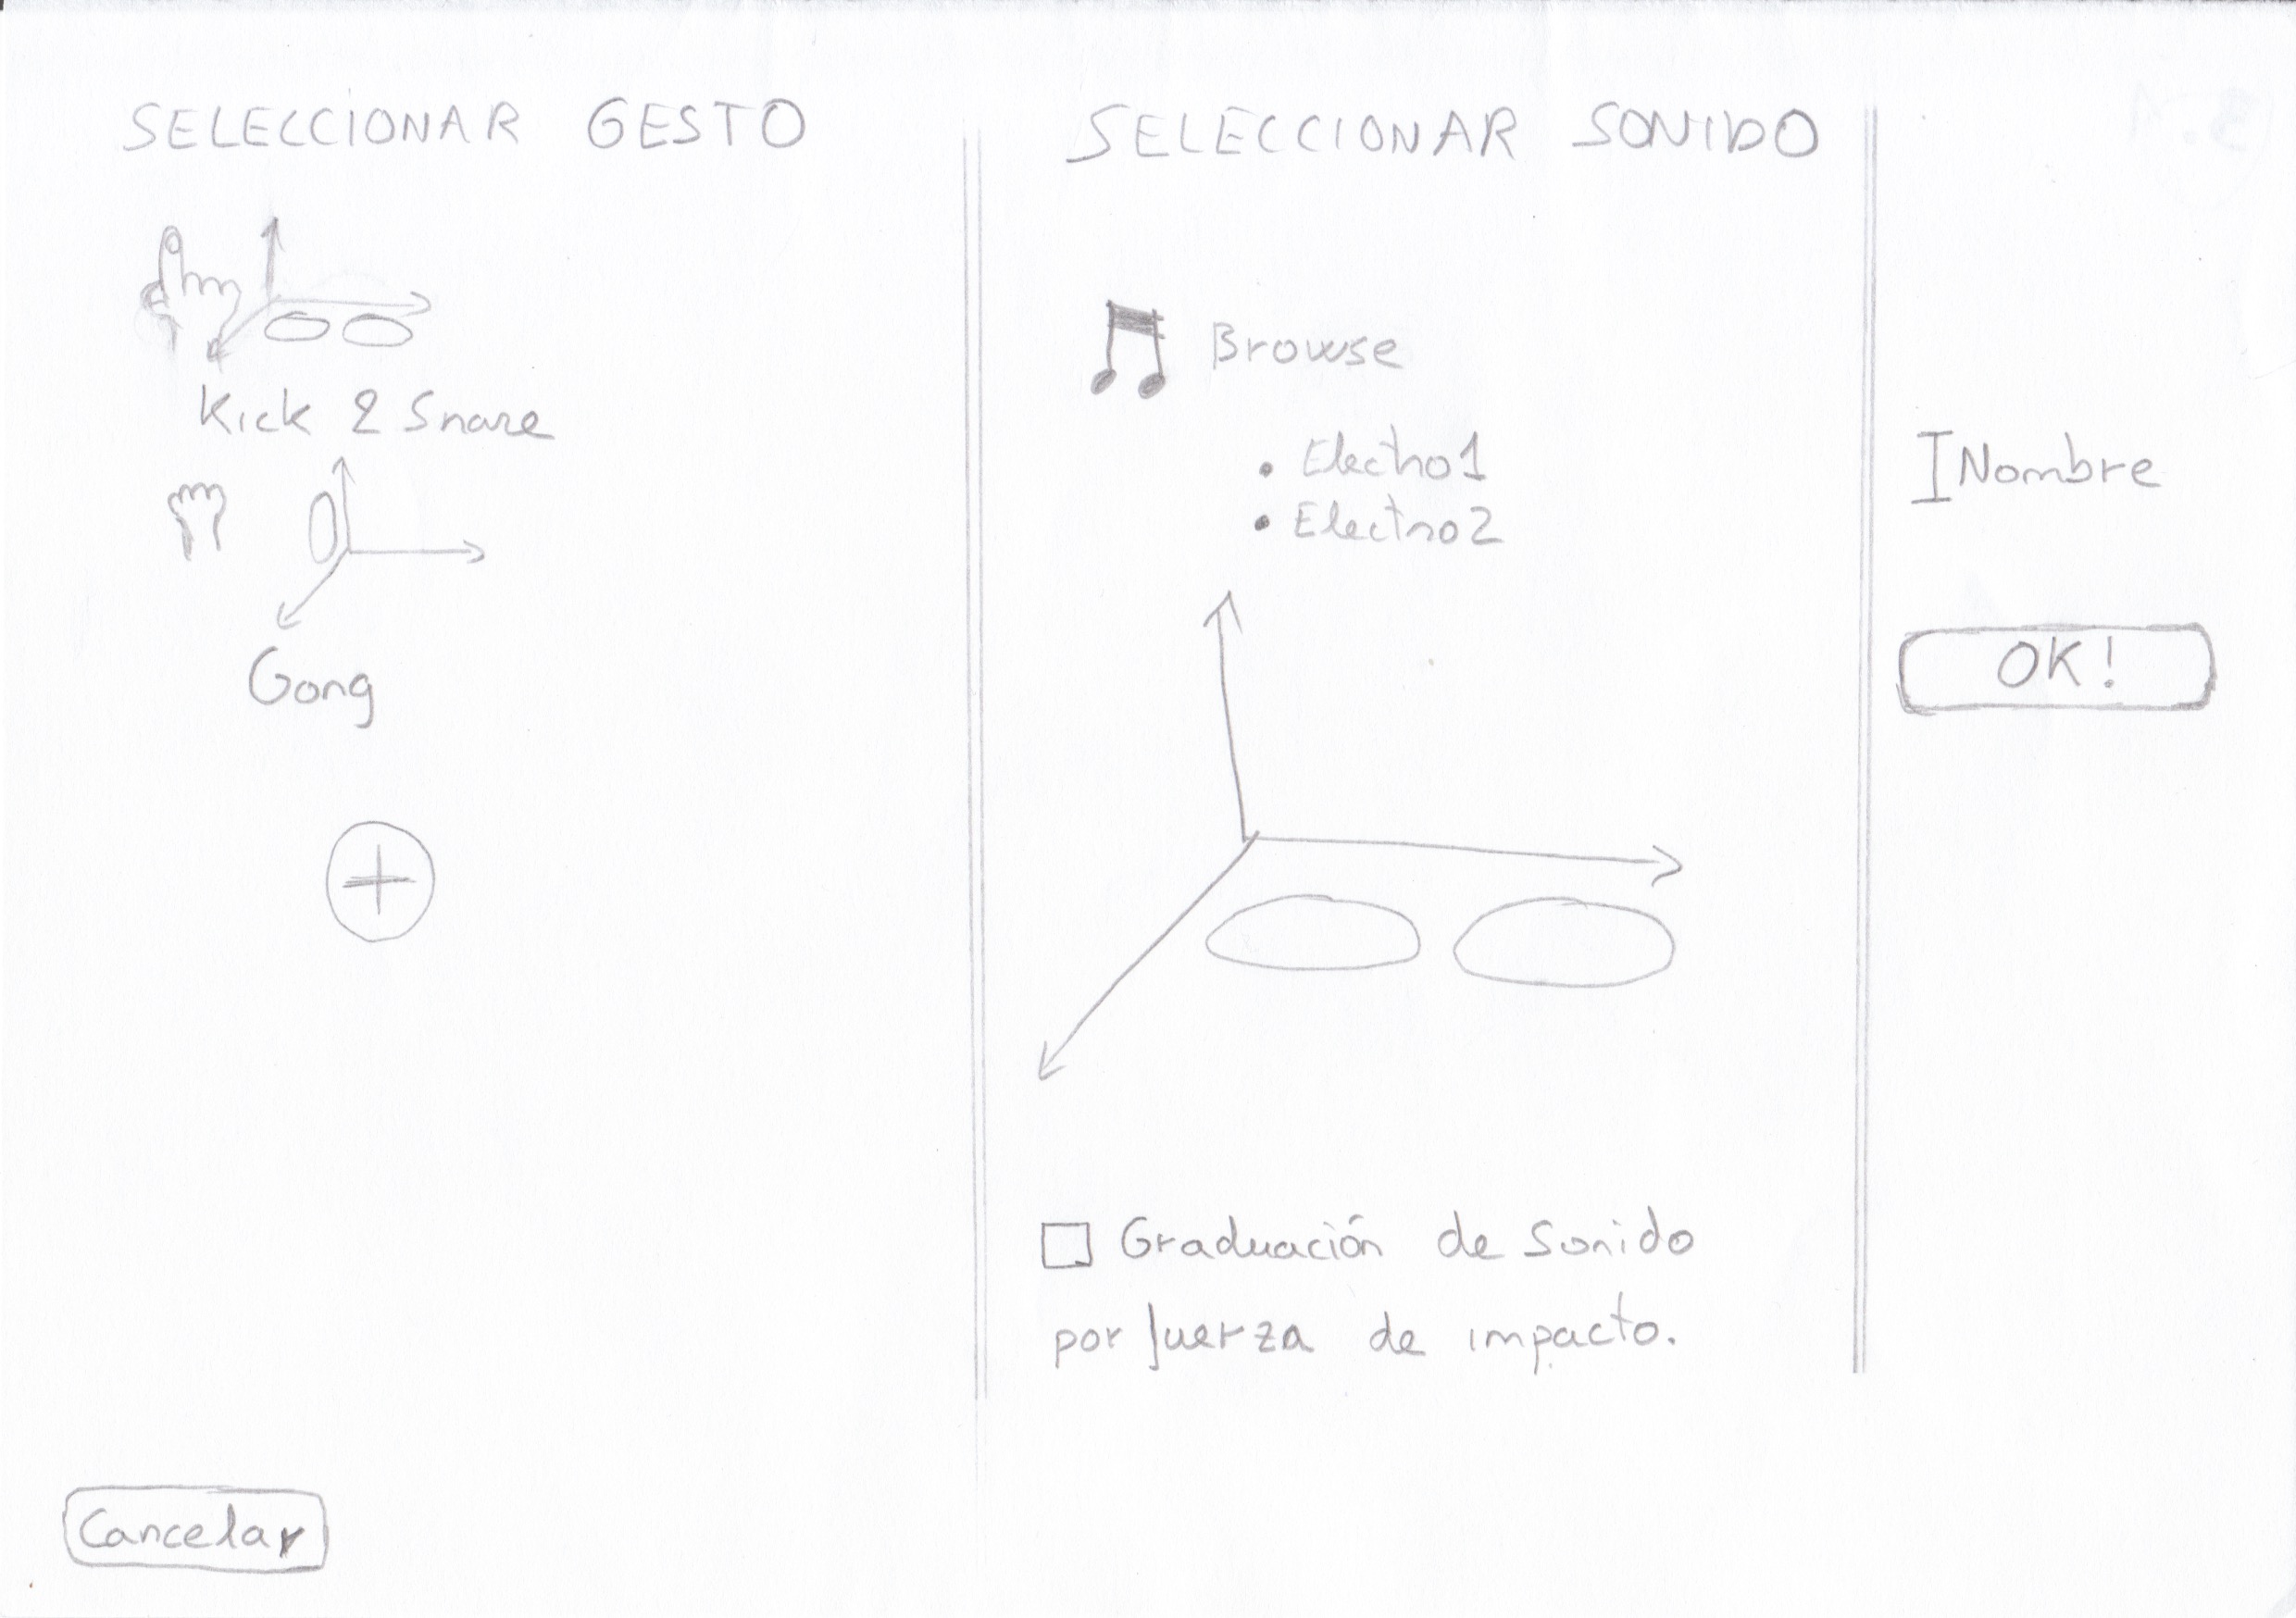 SELECCIONAR GESTO
Kick & Snare
Gong
+
Cancelar
SELECCIONAR SONIDO
Browse
• Electro1
• Electro2
Graduación de Sonido
por fuerza de impacto.
Nombre
OK!